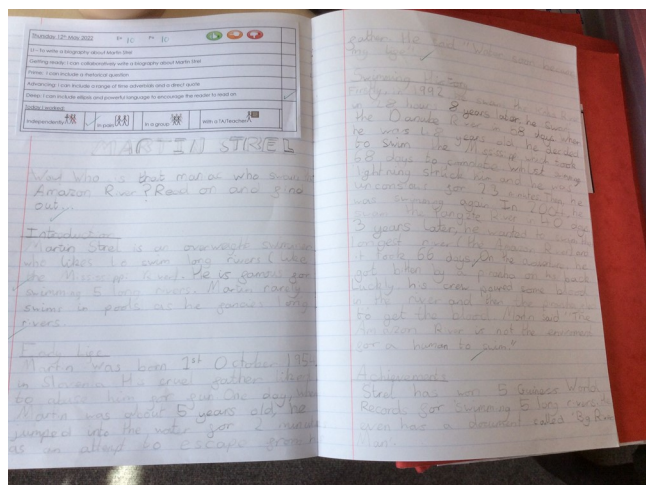 Thursday 12th May 2022
LI – to write a biography about Martin Strel
Getting ready: I can collaboratively write a biography about Martin Strel
I can include a rhetorical question
Advancing: I can include a range of time adverbials and a direct quote
Deep: I can include ellipsis and powerful language to encourage the reader to read on
Today I worked:
Independently
In pairs
In a group
With a TA/Teacher
MARTIN STREL
Who is that maniac who swam
Amazon River? Read on and find
out...
Introduction
Martin Strel is an overweight swimmer
who likes to swim long rivers like
the Mississippi River. He is famous for
swimming 5 long rivers. Martin rarely
swims in pools as he favours long
rivers.
Early Life
Martin was born 1st October 195
in Slovenia. His cruel father
to abuse him for fun. One day, when
Martin was about 5 years old, he
jumped into the water for 2 minutes
as an to escape from
father. He said "Water
my life".
Swimming History
in 1992
in 28 hours. 8 years later, he swam
the Danube River in 58 days. When
he was years old, he decided
to swim the Mississippi which took
68 days to complete whilst swimming
lightning struck him and he was
for 23 minutes. Then he
was swimming again. In 2004, he
swam the Yangtze in 40 days
3 years later, he wanted
longest river (the Amazon River) and
it took 66 days. On the he
got bitten by a piraha on his back
luckily his crew poured some blood
in the river and then the
to get the blood. Martin said "The
Amazon River is not the
for a human to swim."
Achievements
Strel has won 5 Guiness World
Records for swimming 5 long rivers. He
even has a called 'Big River
Man'.